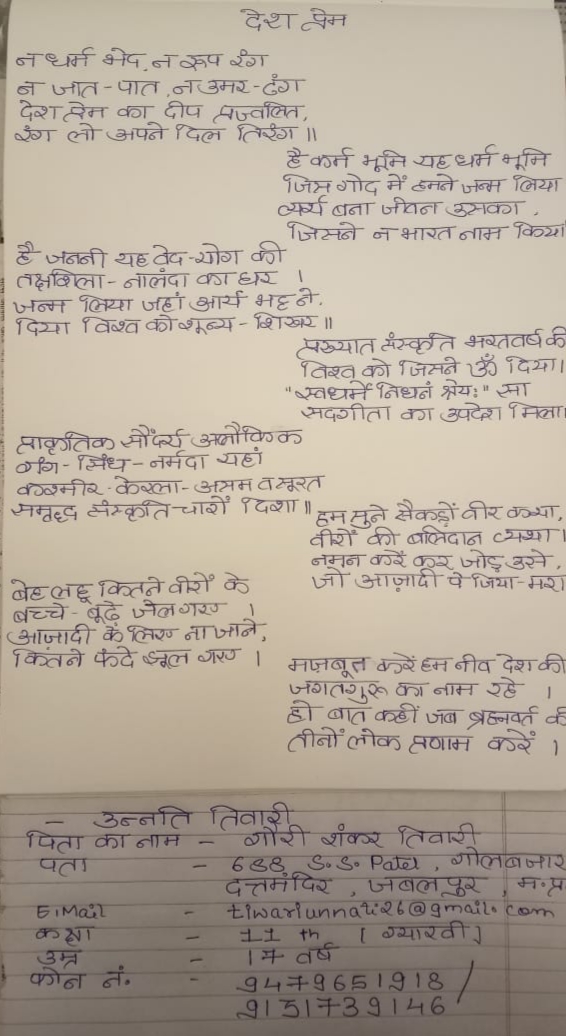 देश प्रेम
न धर्म भेद, न रूप रंग
न जात-पात, न उमर-ढंग
देश प्रेम का दीप प्रज्वलित,
रंग लो अपने दिल तिरंग ॥
है कर्म भूमि यह धर्म भूमि
जिस गोद में हमने जन्म लिया
व्यर्थ बना जीवन उसका,
जिसने न भारत नाम किया
है जननी यह वेद-योग की
तक्षशिला-नालंदा का घर ।
जन्म लिया जहां आर्य भट्ट ने,
दिया विश्व को शून्य-शिखर ॥
प्रख्यात संस्कृति भरतवर्ष की
विश्व को जिसने ॐ दिया।
"स्वधर्मे निधनं श्रेयः" सा
सदगीता का उपदेश मिला।
प्राकृतिक सौंदर्य अलौकिक
गंग-सिंध-नर्मदा यहां
कश्मीर-केरला-असम व सूरत
समृद्ध संस्कृति चारों दिशा॥
हम सुने सैकड़ों वीर कथा,
वीरों की बलिदान व्यथा।
नमन करें कर जोड़ उसे,
जो आज़ादी पे जिया-मरा
बेह लहू कितने वीरों के
बच्चे-बूढ़े जेल गए ।
आज़ादी के लिए ना जाने,
कितने फंदे झूल गए ।
मजबूत करें हम नीव देश की
जगतगुरू का नाम रहे ।
हो बात कहीं जब ब्रह्मवर्त की
तीनों लोक प्रणाम करें ।
- उन्नति तिवारी
पिता का नाम - गौरी शंकर तिवारी
पता - 688 S.S. Patel, गोलबजार
दत्तमंदिर, जबलपुर, म.प्र
E.Mail - tiwariunnati26@gmail.com
कक्षा - 11 th [ ग्यारवी ]
उम्र - 17 वर्ष
फोन नं. - 9479651918/
9131739146